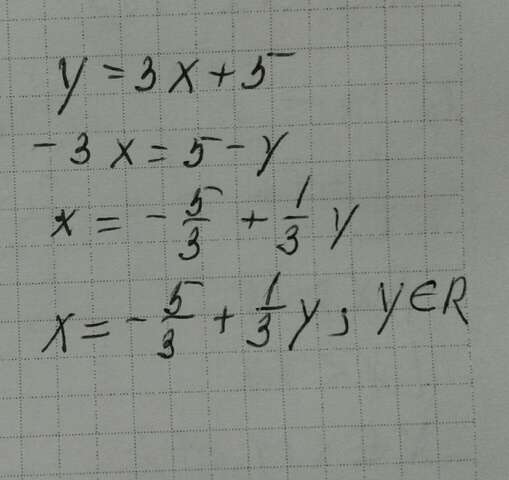 y = 3x + 5
-3x = 5 - y
x = -5/3 + 1/3 y
x = -5/3 + 1/3 y; y ∈ R